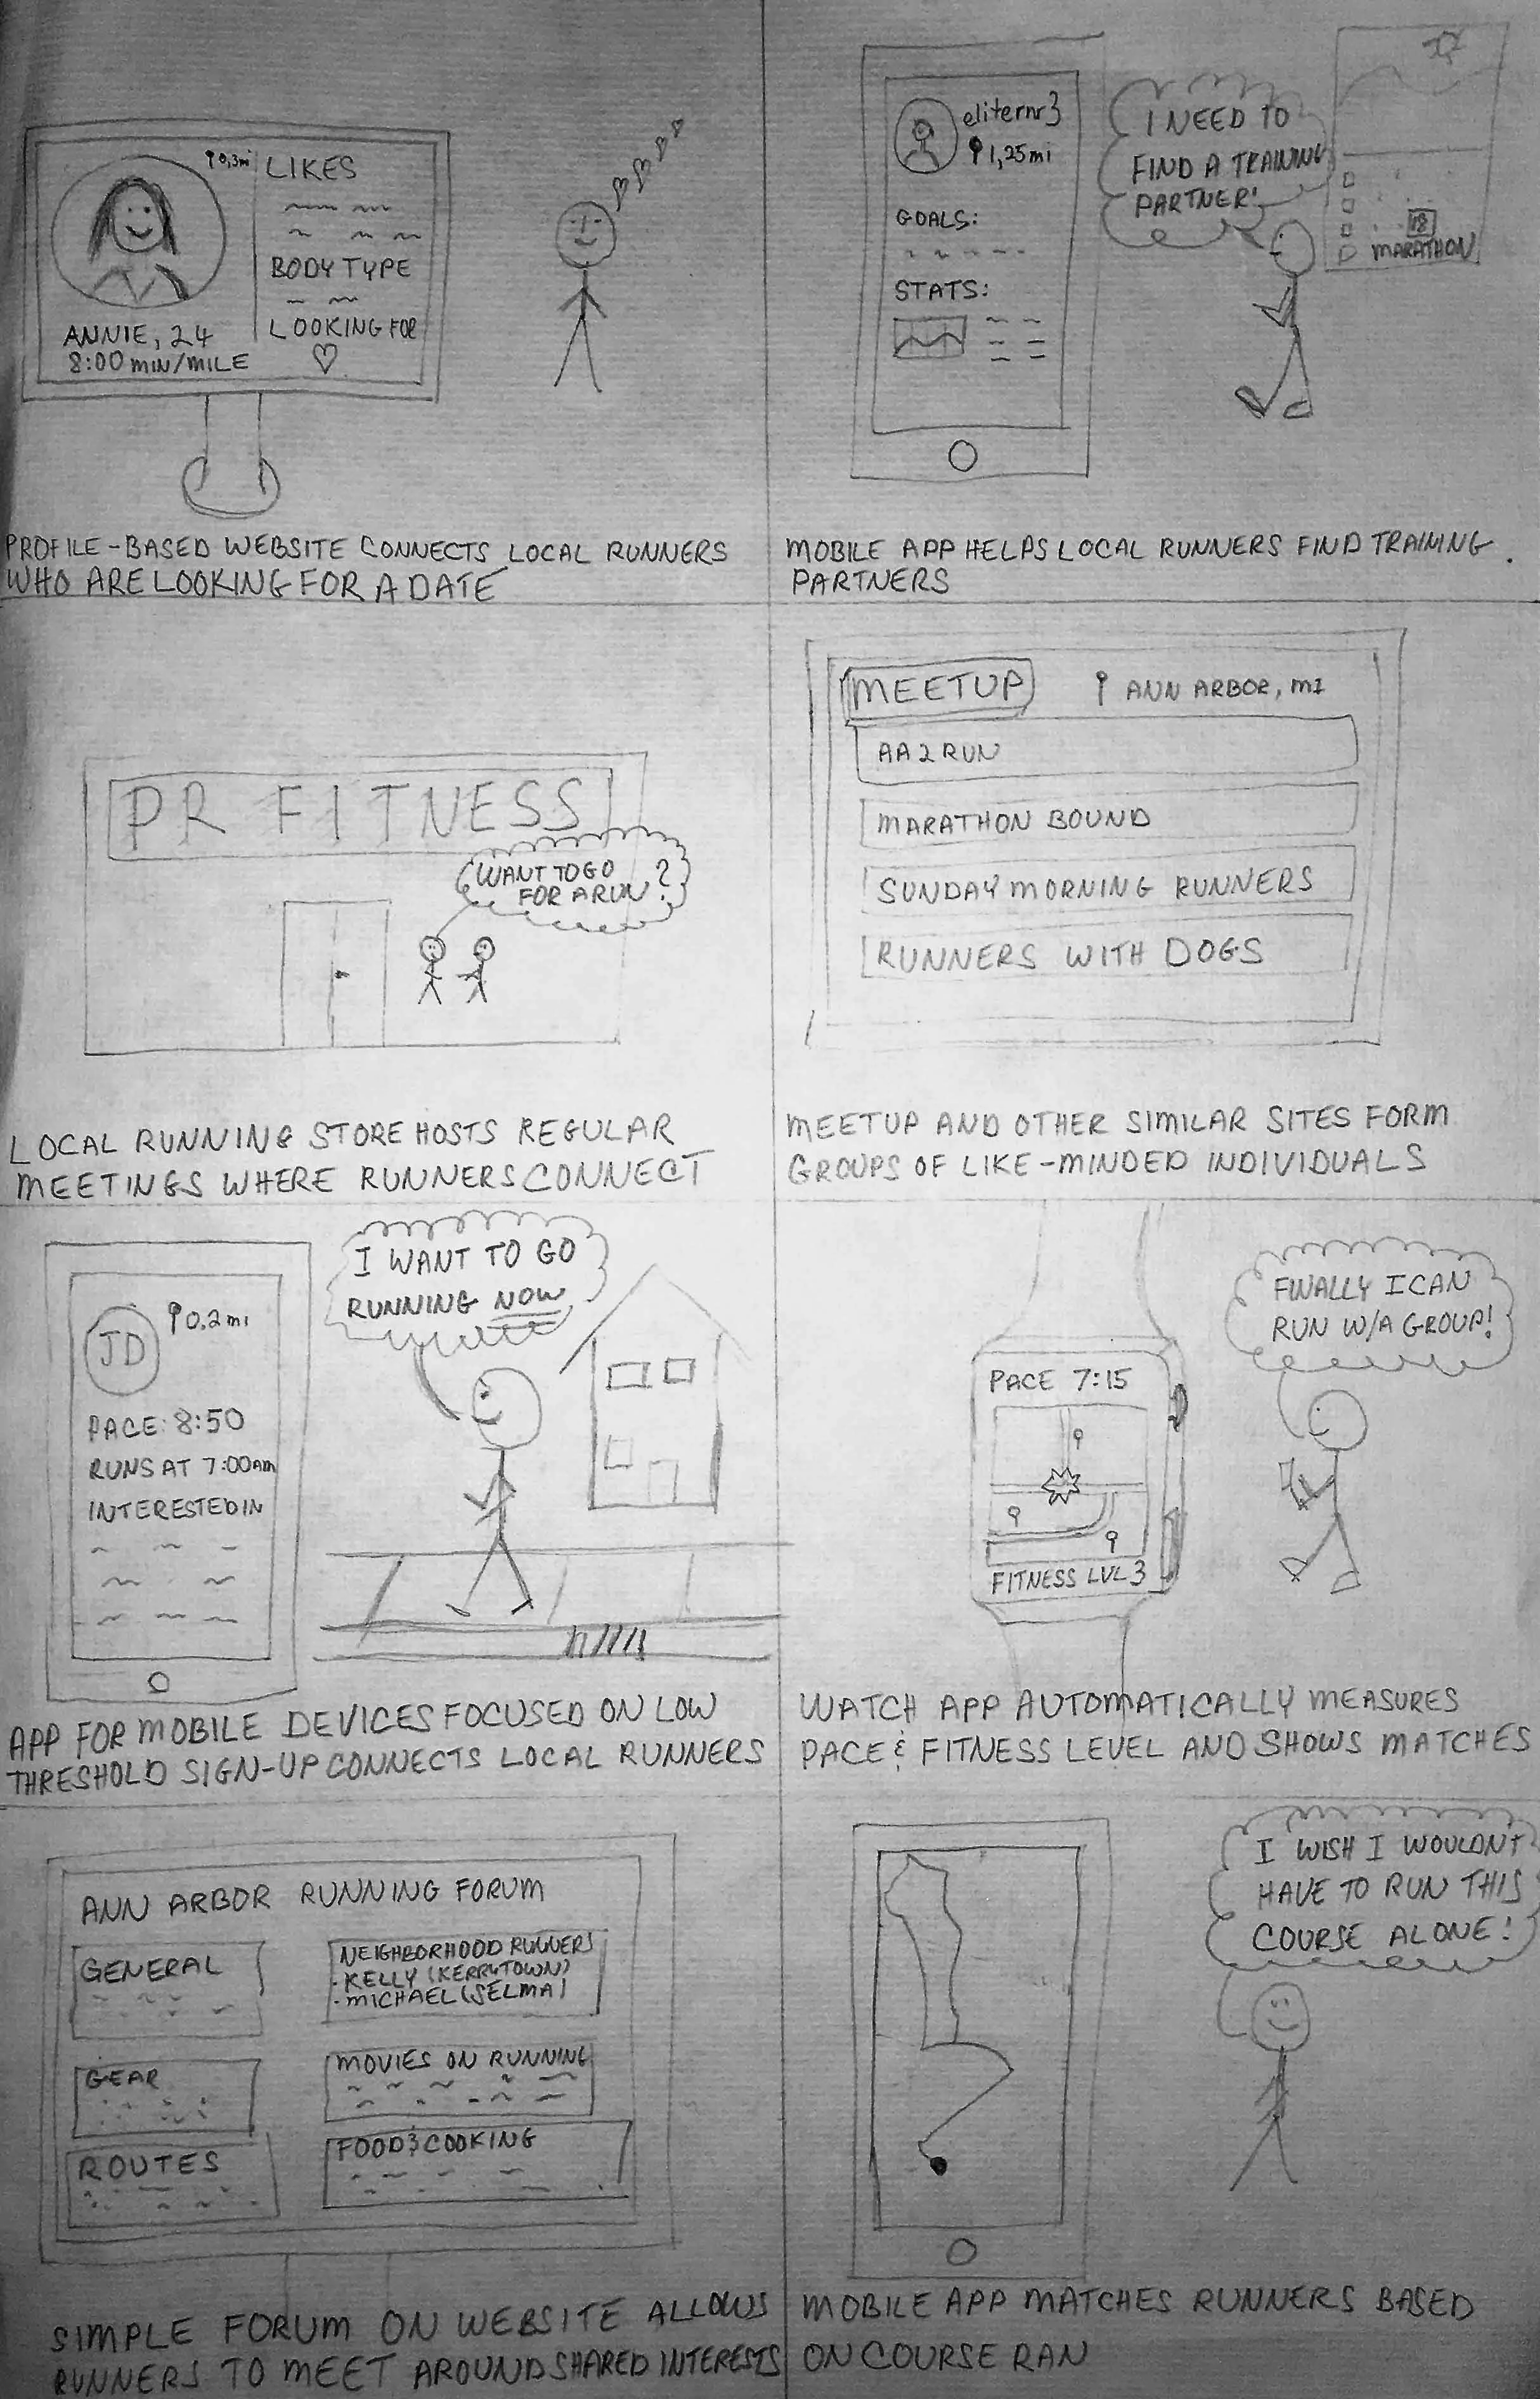 0,3mi
LIKES
BODY TYPE
LOOKING FOR
ANNIE, 24
8:00 MIN/MILE
PROFILE-BASED WEBSITE CONNECTS LOCAL RUNNERS
WHO ARE LOOKING FOR A DATE
eliternr3
1,25mi
GOALS:
STATS:
I NEED TO
FIND A TRAINING
PARTNER!
18
MARATHON
MOBILE APP HELPS LOCAL RUNNERS FIND TRAINING
PARTNERS
PR FITNESS
WANT TO GO
FOR A RUN?
LOCAL RUNNING STORE HOSTS REGULAR
MEETINGS WHERE RUNNERS CONNECT
MEETUP
ANN ARBOR, MI
AA2RUN
MARATHON BOUND
SUNDAY MORNING RUNNERS
RUNNERS WITH DOGS
MEETUP AND OTHER SIMILAR SITES FORM
GROUPS OF LIKE-MINDED INDIVIDUALS
JD
0.2 mi
PACE: 8:50
RUNS AT 7:00AM
INTERESTED IN
I WANT TO GO
RUNNING NOW
APP FOR MOBILE DEVICES FOCUSED ON LOW
THRESHOLD SIGN-UP CONNECTS LOCAL RUNNERS
PACE 7:15
FITNESS LVL 3
FINALLY I CAN
RUN W/A GROUP!
WATCH APP AUTOMATICALLY MEASURES
PACE & FITNESS LEVEL AND SHOWS MATCHES
ANN ARBOR RUNNING FORUM
GENERAL
NEIGHBORHOOD RUNNERS
- KELLY (KERRYTOWN)
- MICHAEL (SELMA)
GEAR
MOVIES ON RUNNING
ROUTES
FOOD & COOKING
SIMPLE FORUM ON WEBSITE ALLOWS
RUNNERS TO MEET AROUND SHARED INTERESTS
I WISH I WOULDN'T
HAVE TO RUN THIS
COURSE ALONE!
MOBILE APP MATCHES RUNNERS BASED
ON COURSE RAN